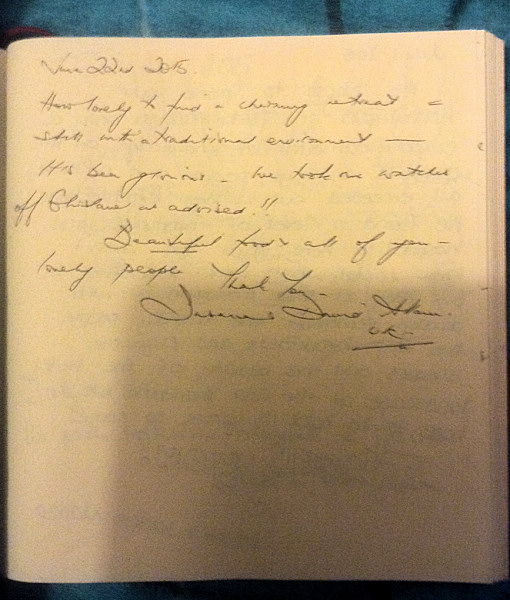 June 22nd 2015
How lovely to find a charming retreat =
still with a traditional environment —
It's been glorious - We took our watches
off Ghislane as advised!!
Beautiful food & all of you -
lovely people Thank You
& David
UK